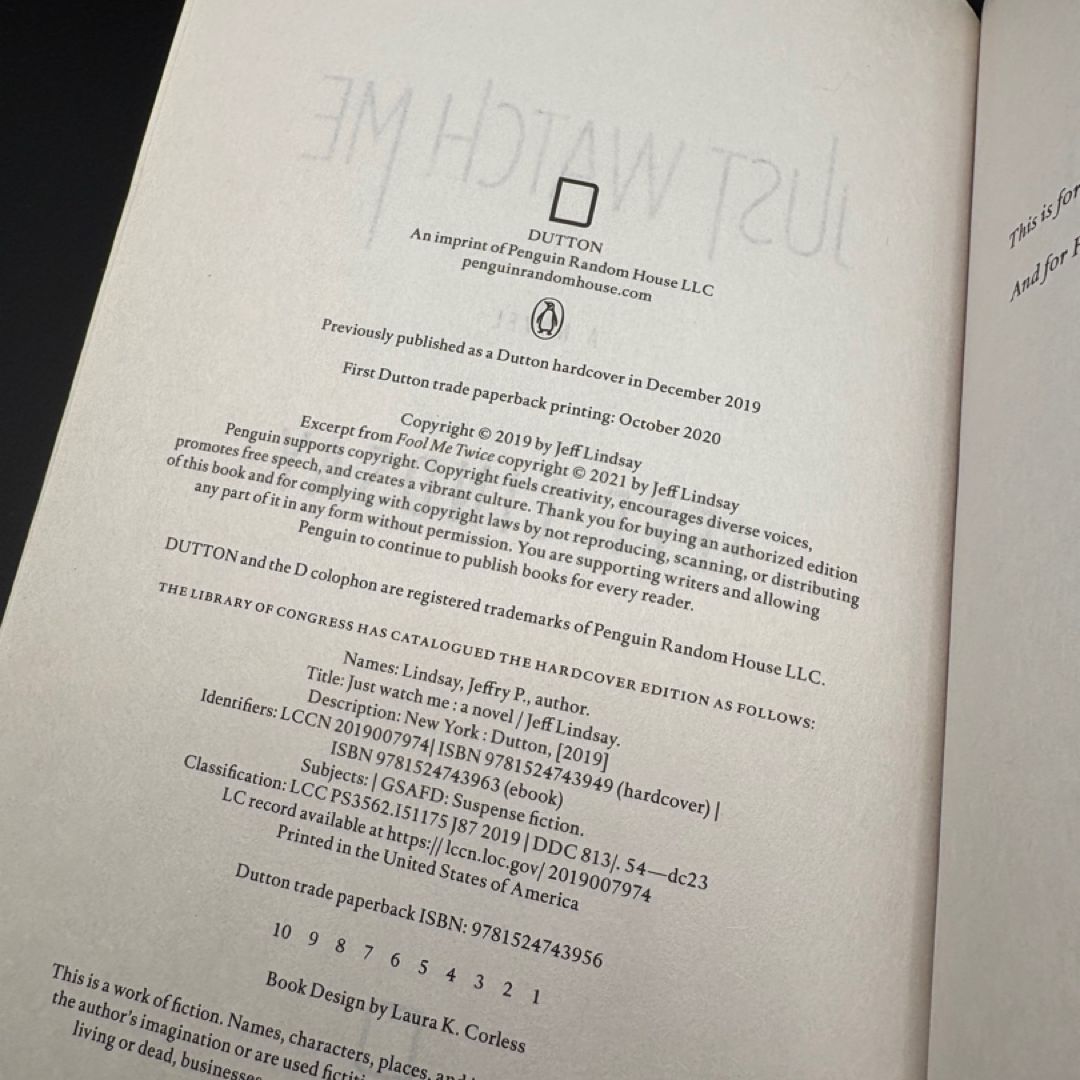 JUST WATCH ME
DUTTON
An imprint of Penguin Random House LLC
penguinrandomhouse.com
Previously published as a Dutton hardcover in December 2019
First Dutton trade paperback printing: October 2020
Copyright © 2019 by Jeff Lindsay
Excerpt from Fool Me Twice copyright © 2021 by Jeff Lindsay
Penguin supports copyright. Copyright fuels creativity, encourages diverse voices,
promotes free speech, and creates a vibrant culture. Thank you for buying an authorized edition
of this book and for complying with copyright laws by not reproducing, scanning, or distributing
any part of it in any form without permission. You are supporting writers and allowing
Penguin to continue to publish books for every reader.
DUTTON and the D colophon are registered trademarks of Penguin Random House LLC.
THE LIBRARY OF CONGRESS HAS CATALOGUED THE HARDCOVER EDITION AS FOLLOWS:
Names: Lindsay, Jeffry P., author.
Title: Just watch me : a novel / Jeff Lindsay.
Description: New York : Dutton, [2019]
Identifiers: LCCN 2019007974| ISBN 9781524743949 (hardcover) |
ISBN 9781524743963 (ebook)
Subjects: | GSAFD: Suspense fiction.
Classification: LCC PS3562.I51175 J87 2019 | DDC 813/. 54—dc23
LC record available at https:// lccn.loc.gov/ 2019007974
Printed in the United States of America
Dutton trade paperback ISBN: 9781524743956
10 9 8 7 6 5 4 3 2 1
Book Design by Laura K. Corless
This is a work of fiction. Names, characters, places, and
the author's imagination or are used
living or dead, businesses
This is for
And for